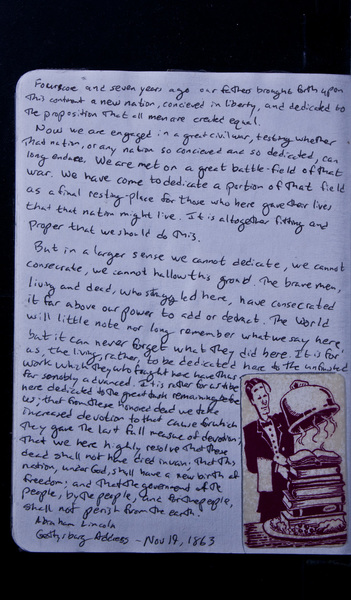 Fourscore and seven years ago our fathers brought forth upon
this continent a new nation, concieved in liberty, and dedicated to
the proposition that all men are created equal.
Now we are engaged in a great civil war, testing whether
that nation, or any nation so concieved and so dedicated, can
long endure. We are met on a great battle-field of that
war. We have come to dedicate a portion of that field
as a final resting place for those who here gave their lives
that that nation might live. It is altogether fitting and
proper that we should do this.
But in a larger sense we cannot dedicate, we cannot
consecrate, we cannot hallow this ground. The brave men,
living and dead, who struggled here, have consecrated
it far above our power to add or detract. The world
will little note nor long remember what we say here,
but it can never forget what they did here. It is for
us, the living, rather, to be dedicated here to the unfinished
work which they who fought here have thus
far so nobly advanced. It is rather for us to be
here dedicated to the great task remaining before
us; that from these honored dead we take
increased devotion to that cause for which
they gave the last full measure of devotion;
that we here highly resolve that these
dead shall not have died in vain; that this
nation, under God, shall have a new birth of
freedom; and that the government of the
people, by the people, and for the people,
shall not perish from the earth.
Abraham Lincoln
Gettysburg Address - Nov 19, 1863